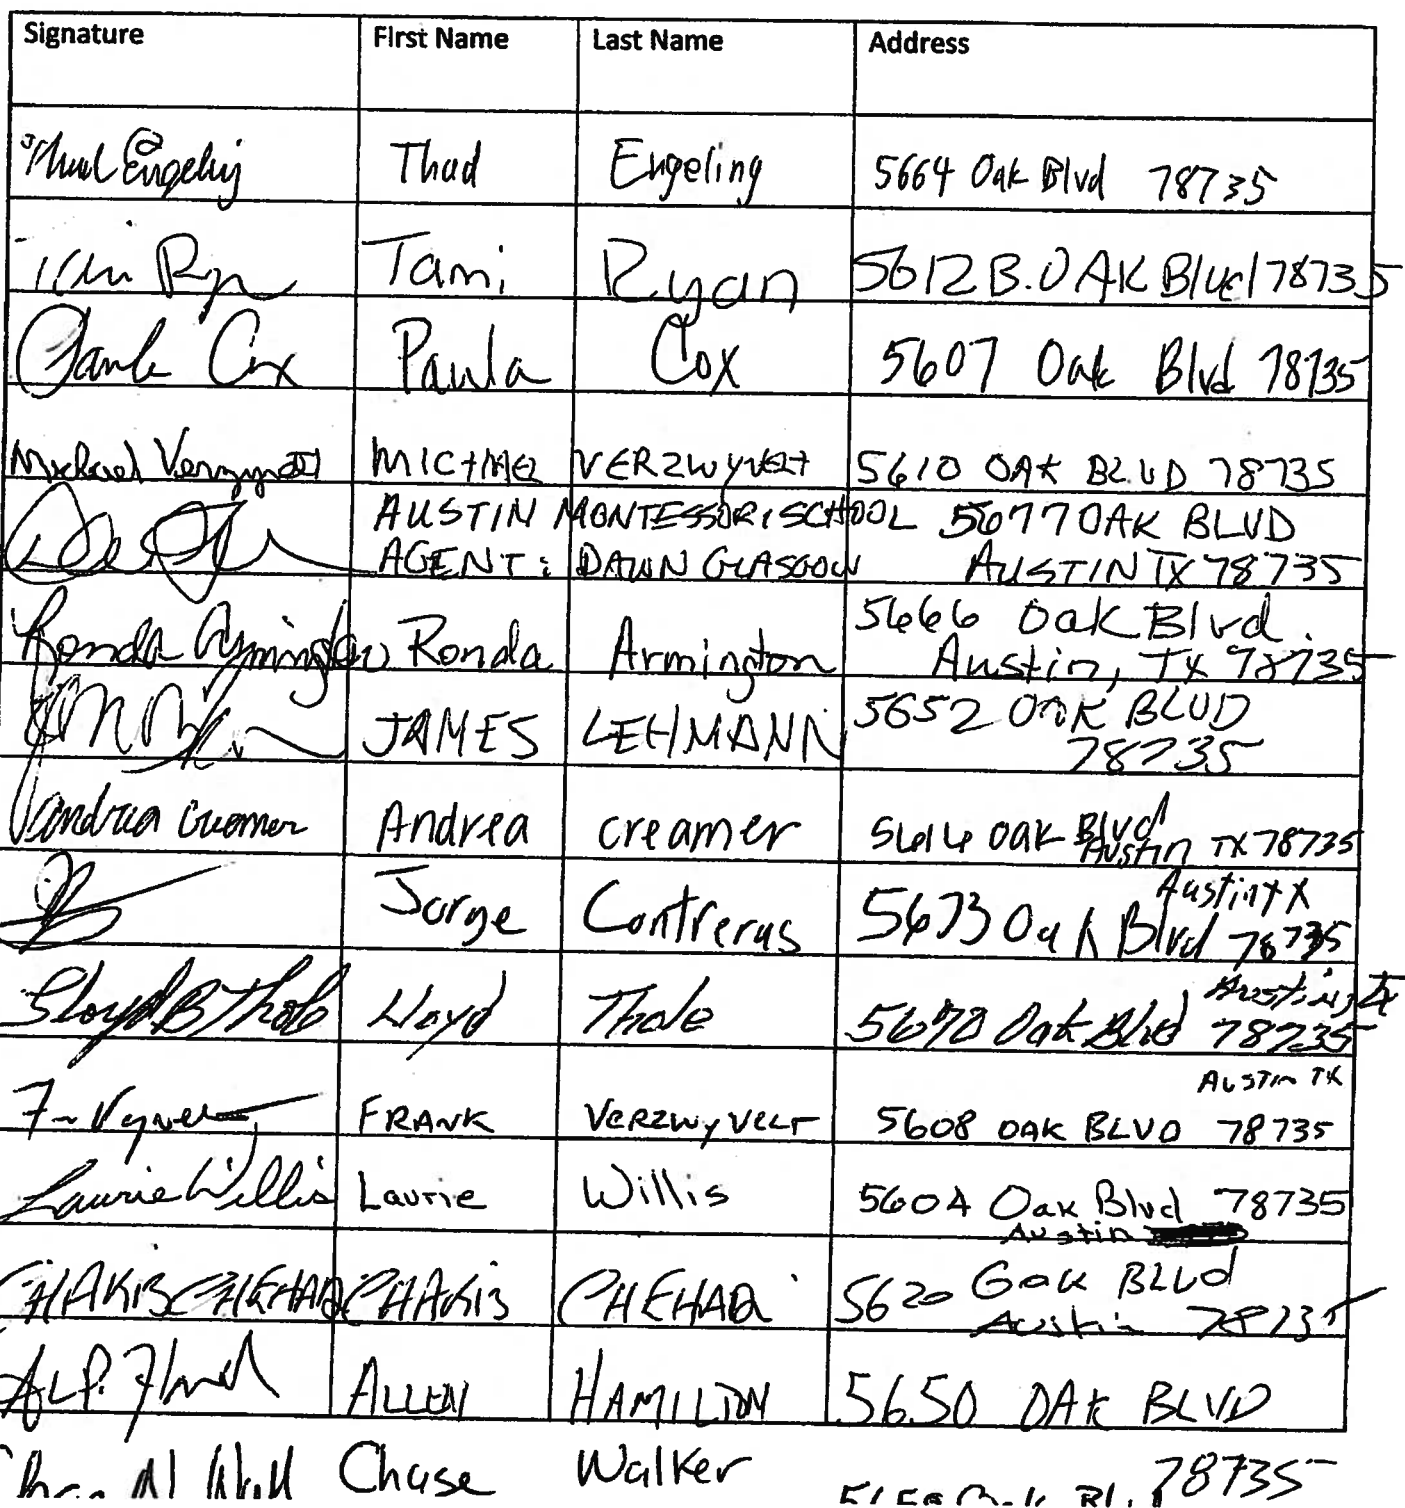 Signature First Name Last Name Address
Thad Engeling Thad Engeling 5664 Oak Blvd 78735
Tami Ryan Tami Ryan 5612 B. OAK Blvd 78735
Paula Cox Paula Cox 5607 Oak Blvd 78735
Michael Verzwyvelt MICHAEL VERZWYVELT 5610 OAK BLVD 78735
AUSTIN MONTESSORI SCHOOL 5677 OAK BLVD
AGENT: DAWN GLASGOW AUSTIN TX 78735
5666 Oak Blvd.
Ronda Armington Ronda Armington Austin, Tx 78735
JAMES LEHMANN 5652 OAK BLVD
78735
Andrea Creamer Andrea creamer 5616 Oak Blvd
Austin TX 78735
Austin TX
Jorge Contreras 5673 Oak Blvd 78735
Austin, Tx
Lloyd B Thole Lloyd Thole 5670 Oak Blvd 78735
AUSTIN TX
FRANK VERZWYVELT 5608 OAK BLVD 78735
Laurie Willis Laurie Willis 5604 Oak Blvd 78735
Austin
CHAKIB CHEHADI CHAKIB CHEHADI 5620 Oak BLVD
Austin 78735
ALLEN HAMILTON 5650 OAK BLVD
78735
Chase Walker